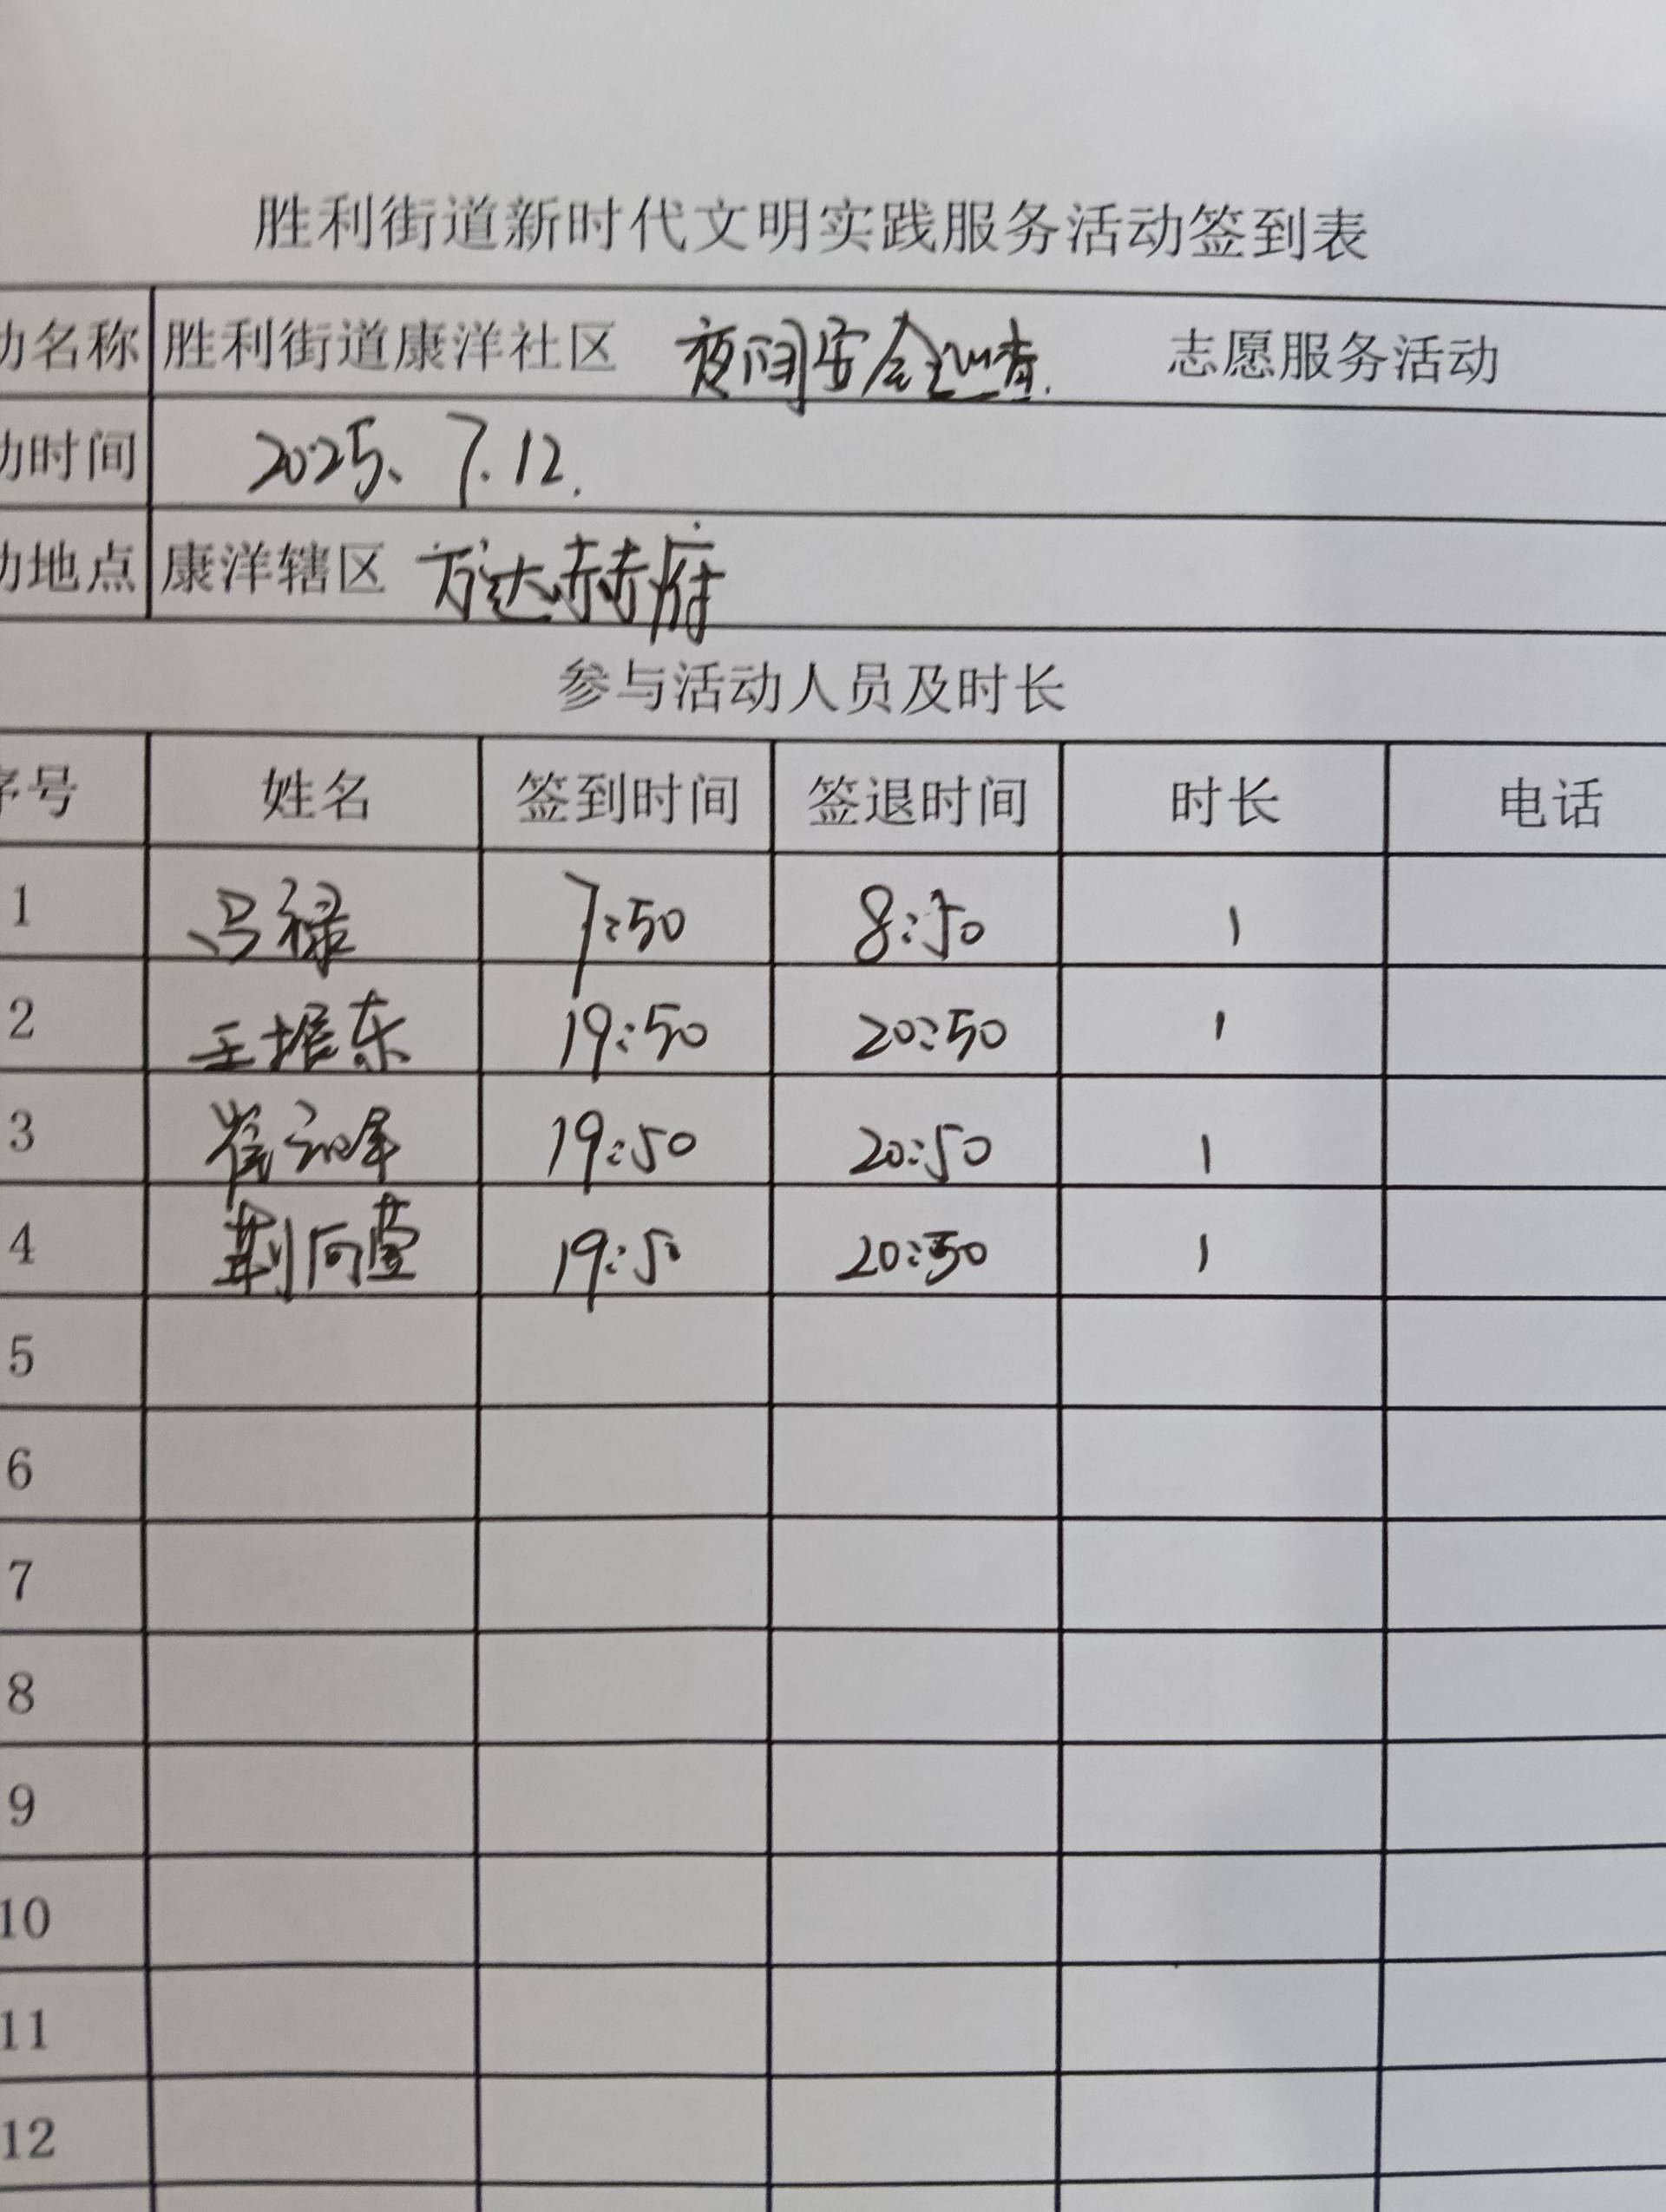 胜利街道新时代文明实践服务活动签到表
动名称 胜利街道康洋社区 夜间安全巡查. 志愿服务活动
动时间 2025、7.12.
动地点 康洋辖区 方达赫府
参与活动人员及时长
序号 姓名 签到时间 签退时间 时长 电话
1 冯禄 7:50 8:50 1
2 王振东 19:50 20:50 1
3 崔 19:50 20:50 1
4 荆向萱 19:50 20:50 1
5
6
7
8
9
10
11
12